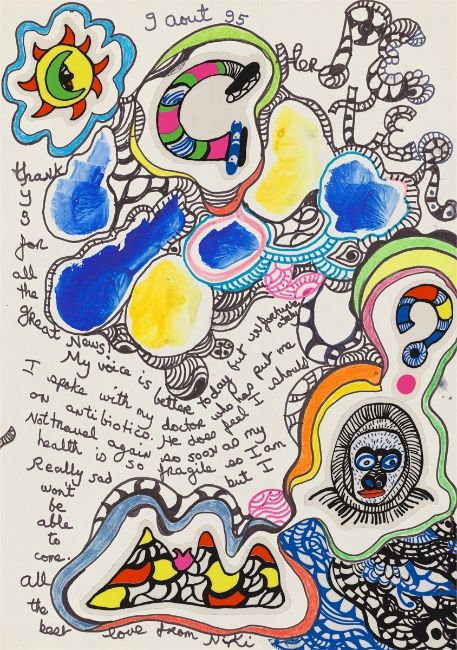 9 aout 95
CHer
PE
ter
thank
y
s
for
all
the
great News!
My voice is better today but
I spoke with my doctor who has put me
on antibiotics. He does feel I should
Not travel again so soon as my
health is so fragile so I am
Really sad but I
won't
be
able
to
come.
All
the
best love from Niki